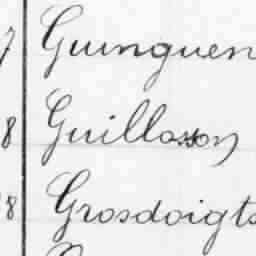 7 Guinguen
8 Guillosson
8 Grosdoigts